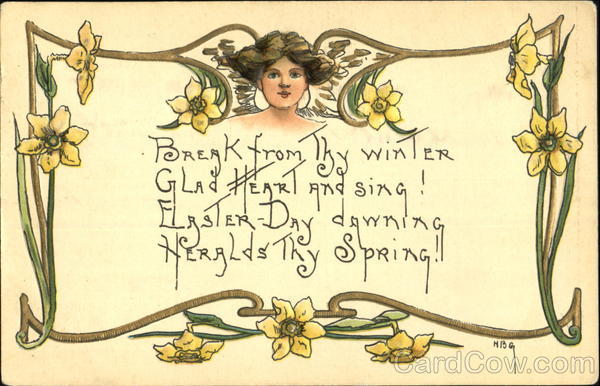 Break from Thy winter
Glad Heart and sing!
Easter-Day dawning
Heralds Thy Spring!
HBG
CardCow.com